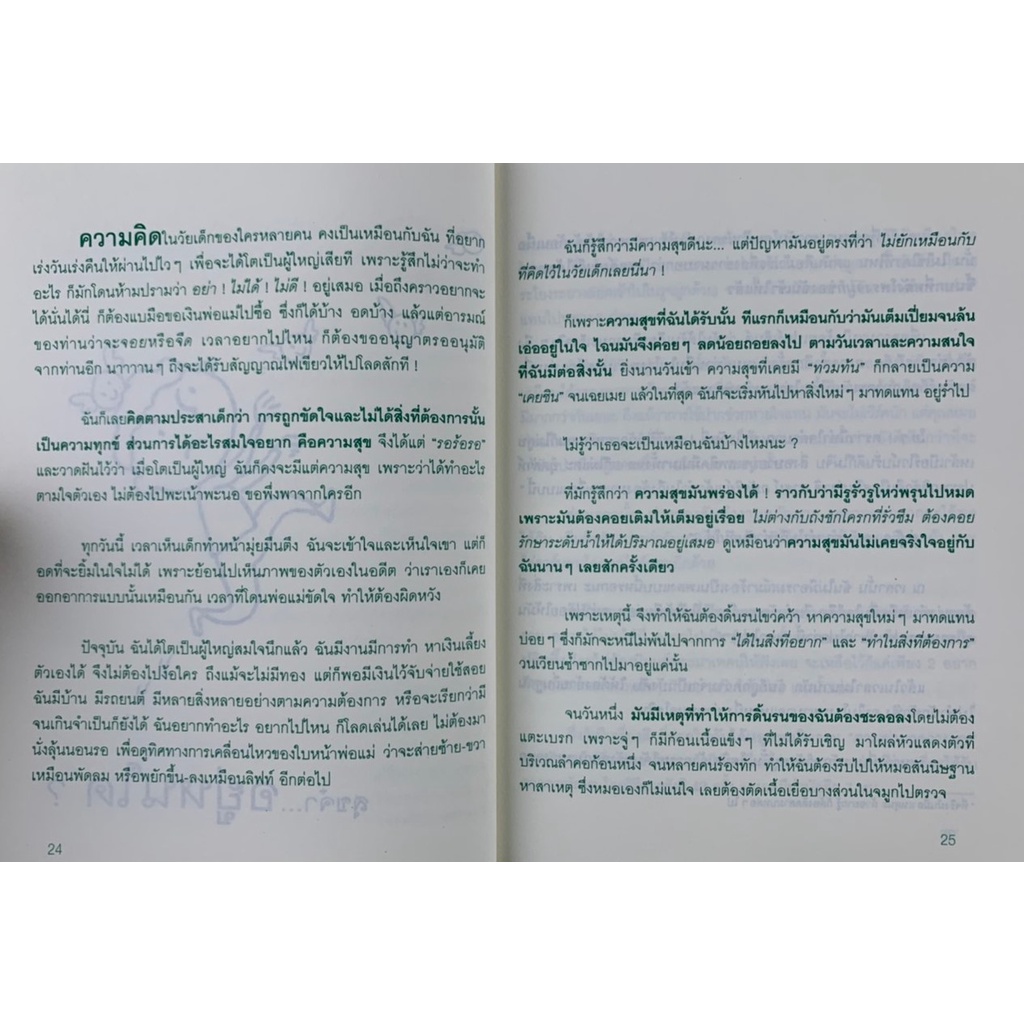 ความคิดในวัยเด็กของใครหลายคน คงเป็นเหมือนกับฉัน ที่อยาก
เร่งวันเร่งคืนให้ผ่านไปไวๆ เพื่อจะได้โตเป็นผู้ใหญ่เสียที เพราะรู้สึกไม่ว่าจะทำ
อะไร ก็มักโดนห้ามปรามว่า อย่า ! ไม่ได้ ! ไม่ดี ! อยู่เสมอ เมื่อถึงคราวอยากจะ
ได้นั่นได้นี่ ก็ต้องแบมือขอเงินพ่อแม่ไปซื้อ ซึ่งก็ได้บ้าง อดบ้าง แล้วแต่อารมณ์
ของท่านว่าจะจอยหรือจืด เวลาอยากไปไหน ก็ต้องขออนุญาตรออนุมัติ
จากท่านอีก นาาาานๆ ถึงจะได้รับสัญญาณไฟเขียวให้ไปโลดสักที !
ฉันก็เลยคิดตามประสาเด็กว่า การถูกขัดใจและไม่ได้สิ่งที่ต้องการนั้น
เป็นความทุกข์ ส่วนการได้อะไรสมใจอยาก คือความสุข จึงได้แต่ "รอร้อรอ"
และวาดฝันไว้ว่า เมื่อโตเป็นผู้ใหญ่ ฉันก็คงจะมีแต่ความสุข เพราะว่าได้ทำอะไร
ตามใจตัวเอง ไม่ต้องไปพะเน้าพะนอ ขอพึ่งพาจากใครอีก
ทุกวันนี้ เวลาเห็นเด็กทำหน้ามุ่ยมึนตึง ฉันจะเข้าใจและเห็นใจเขา แต่ก็
อดที่จะยิ้มในใจไม่ได้ เพราะย้อนไปเห็นภาพของตัวเองในอดีต ว่าเราเองก็เคย
ออกอาการแบบนั้นเหมือนกัน เวลาที่โดนพ่อแม่ขัดใจ ทำให้ต้องผิดหวัง
ปัจจุบัน ฉันได้โตเป็นผู้ใหญ่สมใจนึกแล้ว ฉันมีงานมีการทำ หาเงินเลี้ยง
ตัวเองได้ จึงไม่ต้องไปง้อใคร ถึงแม้จะไม่มีทอง แต่ก็พอมีเงินไว้จับจ่ายใช้สอย
ฉันมีบ้าน มีรถยนต์ มีหลายสิ่งหลายอย่างตามความต้องการ หรือจะเรียกว่ามี
จนเกินจำเป็นก็ยังได้ ฉันอยากทำอะไร อยากไปไหน ก็โลดเล่นได้เลย ไม่ต้องมา
นั่งลุ้นนอนรอ เพื่อดูทิศทางการเคลื่อนไหวของใบหน้าพ่อแม่ ว่าจะส่ายซ้าย-ขวา
เหมือนพัดลม หรือพยักขึ้น-ลงเหมือนลิฟท์ อีกต่อไป
24
ฉันก็รู้สึกว่ามีความสุขดีนะ... แต่ปัญหามันอยู่ตรงที่ว่า ไม่ยักเหมือนกับ
ที่คิดไว้ในวัยเด็กเลยนี่นา !
ก็เพราะความสุขที่ฉันได้รับนั้น ทีแรกก็เหมือนกับว่ามันเต็มเปี่ยมจนล้น
เอ่ออยู่ในใจ ไฉนมันจึงค่อยๆ ลดน้อยถอยลงไป ตามวันเวลาและความสนใจ
ที่ฉันมีต่อสิ่งนั้น ยิ่งนานวันเข้า ความสุขที่เคยมี "ท่วมท้น" ก็กลายเป็นความ
"เคยชิน" จนเฉยเมย แล้วในที่สุด ฉันก็จะเริ่มหันไปหาสิ่งใหม่ๆ มาทดแทน อยู่ร่ำไป
ไม่รู้ว่าเธอจะเป็นเหมือนฉันบ้างไหมนะ ?
ที่มักรู้สึกว่า ความสุขมันพร่องได้ ! ราวกับว่ามีรูรั่วรูโหว่พรุนไปหมด
เพราะมันต้องคอยเติมให้เต็มอยู่เรื่อย ไม่ต่างกับถังชักโครกที่รั่วซึม ต้องคอย
รักษาระดับน้ำให้ได้ปริมาณอยู่เสมอ ดูเหมือนว่าความสุขมันไม่เคยจริงใจอยู่กับ
ฉันนานๆ เลยสักครั้งเดียว
เพราะเหตุนี้ จึงทำให้ฉันต้องดิ้นรนไขว่คว้า หาความสุขใหม่ๆ มาทดแทน
บ่อยๆ ซึ่งก็มักจะหนีไม่พ้นไปจากการ "ได้ในสิ่งที่อยาก" และ "ทำในสิ่งที่ต้องการ"
วนเวียนซ้ำซากไปมาอยู่แค่นั้น
จนวันหนึ่ง มันมีเหตุที่ทำให้การดิ้นรนของฉันต้องชะลอลงโดยไม่ต้อง
แตะเบรก เพราะจู่ๆ ก็มีก้อนเนื้อแข็งๆ ที่ไม่ได้รับเชิญ มาโผล่หัวแสดงตัวที่
บริเวณลำคอก้อนหนึ่ง จนหลายคนร้องทัก ทำให้ฉันต้องรีบไปให้หมอสันนิษฐาน
หาสาเหตุ ซึ่งหมอเองก็ไม่แน่ใจ เลยต้องตัดเนื้อเยื่อบางส่วนในจมูกไปตรวจ
25